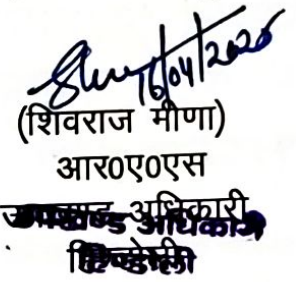 16/04/2026
(शिवराज मीणा)
आर०ए०एस
उपखण्ड अधिकारी
हिण्डोली